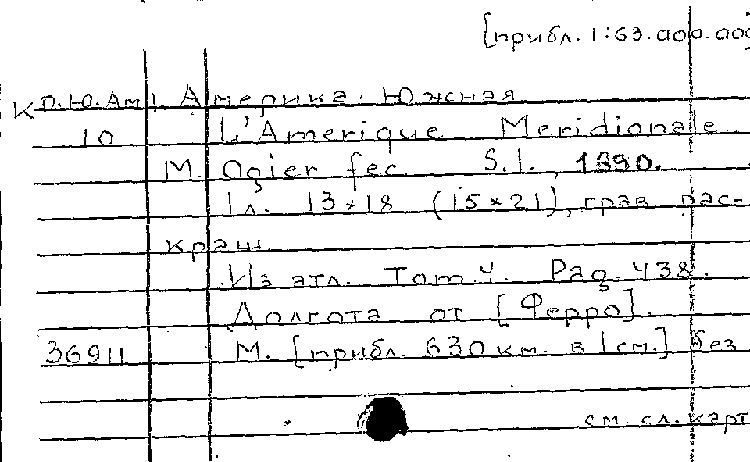 [прибл. 1:63.000.000]
К П.Ю.Ам. Америка Южная
10 L'Amerique Meridionale
M. Ogier fec. S.l., 1690.
1 л. 13×18 (15×21), грав. рас-
краш.
Из атл. Tom. 4. Pag. 438.
Долгота от [Ферро].
36911 М. [прибл. 630 км. в 1 см.] без
см. сл. карт